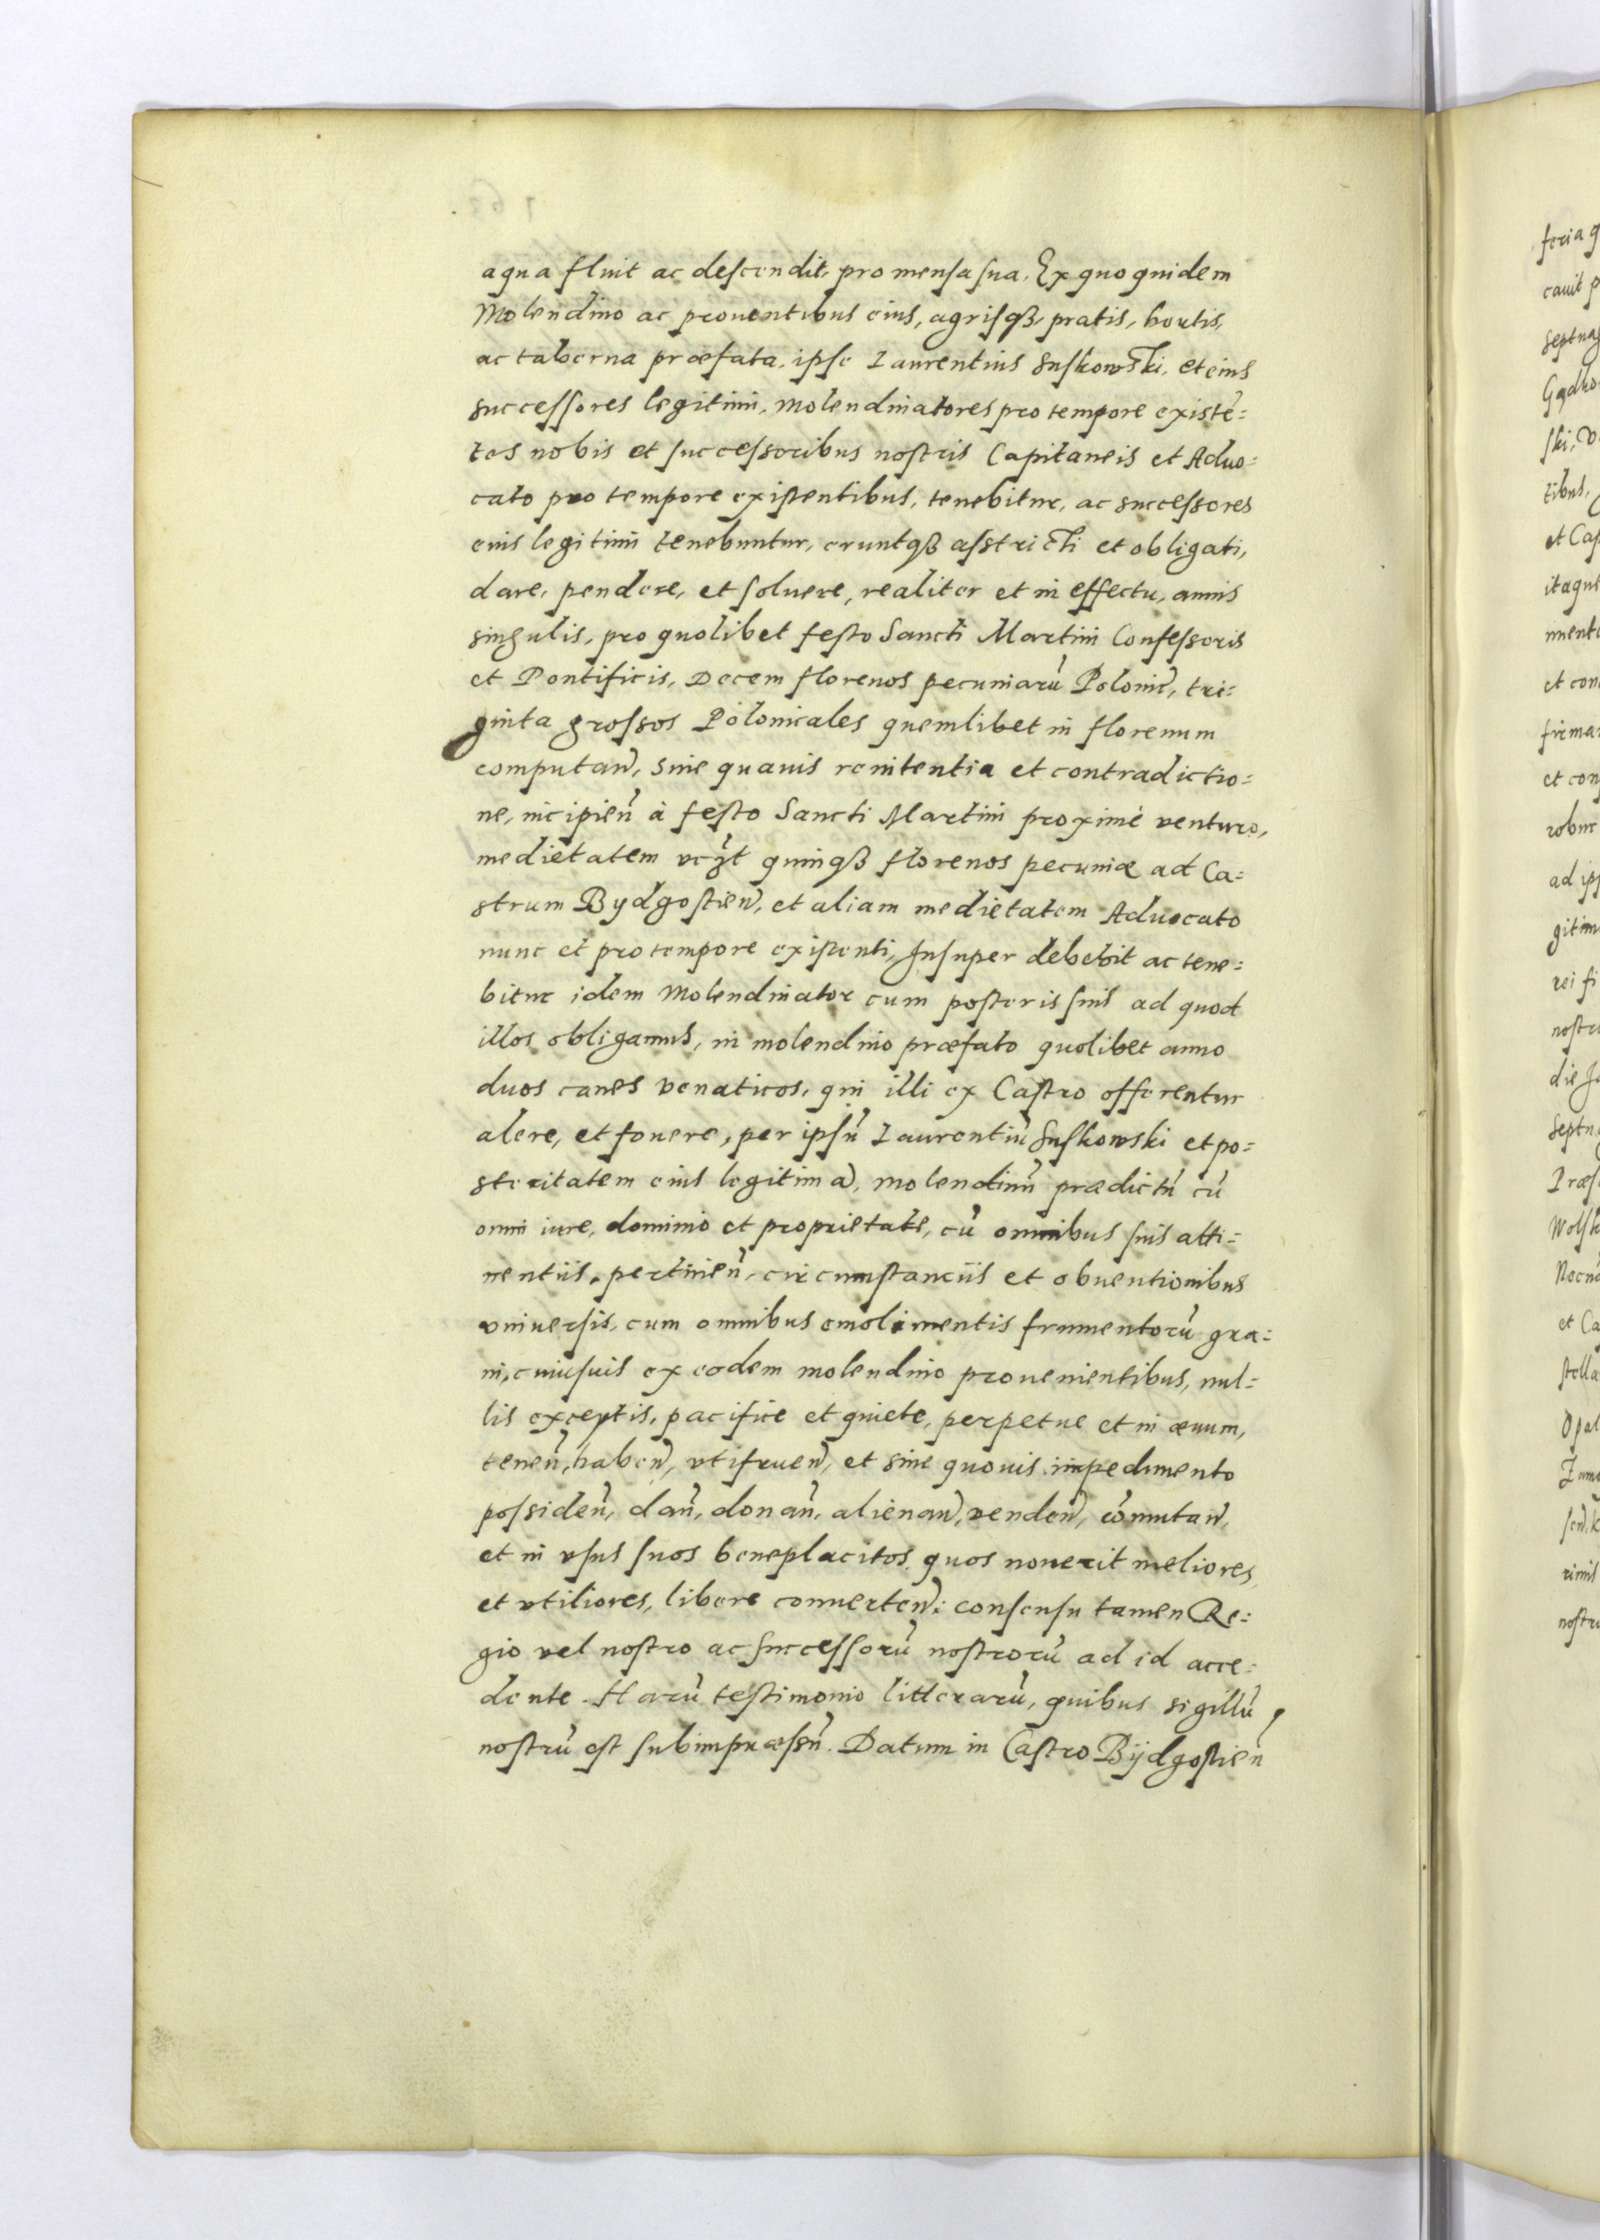 aqua fluit ac descendit, pro mensa sua. Ex quo quidem
Molendino ac prouentibus eius, agrisqȝ, pratis, hortis,
ac taberna præfata, ipse Laurentius Suskowski, et eius
successores legitimi, molendinatores pro tempore existē=
tes nobis et successoribus nostris Capitaneis et Aduo=
cato pro tempore existentibus, tenebitur, ac successores
eius legitimi tenebuntur, eruntqȝ astricti et obligati,
dare, pendere, et soluere, realiter et in effectu, annis
singulis, pro quolibet festo Sancti Martini Confessoris
et Pontificis, Decem florenos pecuniarū Polonic̄, tri=
ginta grossos Polonicales quemlibet in florenum
computan̄, sine quauis renitentia et contradictio=
ne, incipien̄ à festo Sancti Martini proximè venturo,
medietatem vcʒt quinqȝ florenos pecuniæ ad Ca=
strum Bydgostien̄, et aliam medietatem Aduocato
nunc et pro tempore existenti, Insuper debebit ac tene=
bitur idem Molendinator cum posteris suis ad quod
illos obligamus, in molendino præfato quolibet anno
duos canes venaticos, qui illi ex Castro offerentur
alere, et fouere, per ipsū Laurentiū Suskowski et po=
steritatem eius legitimā, molendinū prædictū cū
omni iure, dominio et proprietate, cū omnibus suis atti=
nentiis, pertinen̄, circumstanciis et obuentionibus
vniuersis, cum omnibus emolimentis frumentorū gra=
ni, cuiusuis ex eodem molendino prouenientibus, nul=
lis exceptis, pacifice et quiete, perpetue et in æuum,
tenen̄, haben̄, vtifruen̄, et sine quouis impedimento
possiden̄, dan̄, donan̄, alienan̄, venden̄, cōmutan̄,
et in vsus suos beneplacitos quos nouerit meliores,
et vtiliores, libere conuerten̄: consensu tamen Re=
gio vel nostro ac successorū nostrorū ad id acce=
dente. Harū testimonio litterarū, quibus sigillū
nostrū est subimpræssū. Datum in Castro Bÿdgostien̄